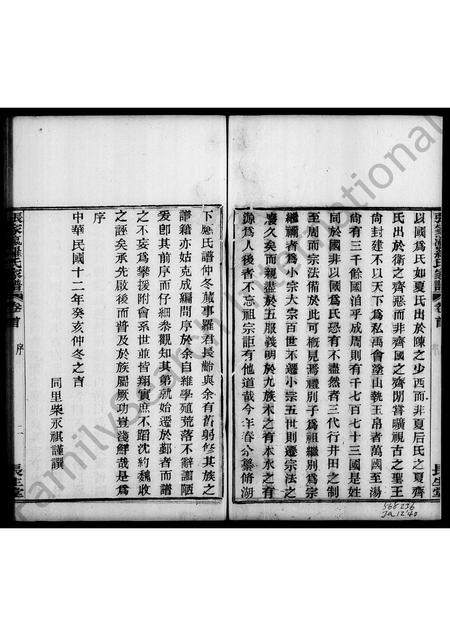 以國爲氏如夏氏出於陳之少西而非夏后氏之夏齊
氏出於衛之齊惡而非齊國之齊閒嘗曠觀古之聖王
尙封建不以天下爲私禹會塗山執王帛者萬國至湯
尙有三千餘國洎乎成周則有千七百七十三國是姓
同於國非以國爲氏恐有不盡然者三代行井田之制
至周而宗法備於此可槪見焉禮別子爲祖繼別爲宗
繼禰者爲小宗大宗百世不遷小宗五世則遷宗法之
廢久矣而親盡於五服義明於九族木之有本水之有
源爲人後者不忘有祖宗詎有他道哉今年春分纂脩湖
下羅氏譜仲冬蕆事羅君長齡與余有舊躬修其族之
譜籍亦姑克成編問序於余自維學殖荒落不辭譾陋
爰卽其前序而仔細參觀知其第就始遷於鄞者而譜
之不妄爲攀援附會系世並皆翔實庶不蹈沈約魏收
之誣矣承先啟後而普及於族屬厥功豈淺鮮哉是爲
序
中華民國十二年癸亥仲冬之吉
同里柴永祺謹譔
張家瀛羅氏家譜
卷首
序
二
長生堂
568236
Ja 12 40
FamilySearch International